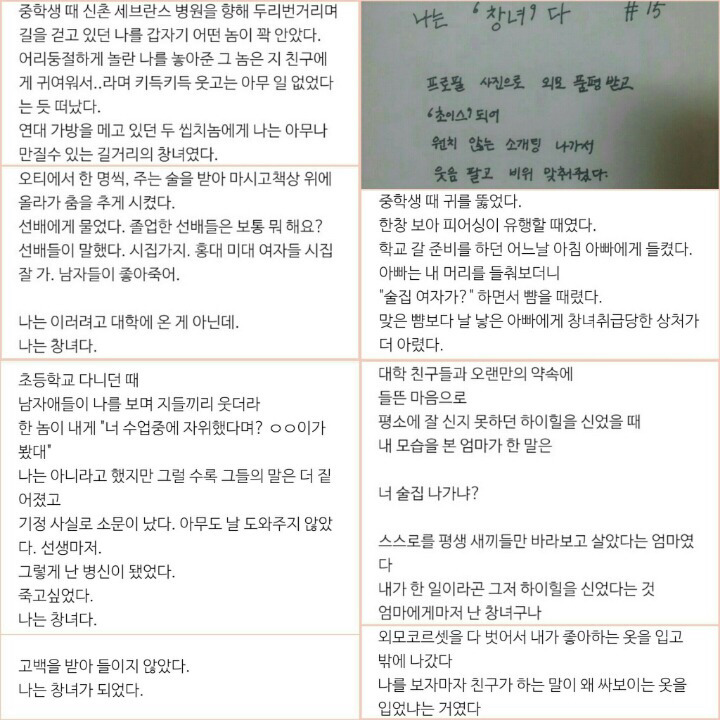 중학생 때 신촌 세브란스 병원을 향해 두리번거리며
길을 걷고 있던 나를 갑자기 어떤 놈이 꽉 안았다.
어리둥절하게 놀란 나를 놓아준 그 놈은 지 친구에
게 귀여워서..라며 키득키득 웃고는 아무 일 없었다
는 듯 떠났다.
연대 가방을 메고 있던 두 씹치놈에게 나는 아무나
만질수 있는 길거리의 창녀였다.
나는 '창녀'다 #15
프로필 사진으로 외모 품평 받고
'초이스' 되어
원치 않는 소개팅 나가서
웃음 팔고 비위 맞춰줬다.
오티에서 한 명씩, 주는 술을 받아 마시고책상 위에
올라가 춤을 추게 시켰다.
선배에게 물었다. 졸업한 선배들은 보통 뭐 해요?
선배들이 말했다. 시집가지. 홍대 미대 여자들 시집
잘 가. 남자들이 좋아죽어.
나는 이러려고 대학에 온 게 아닌데.
나는 창녀다.
중학생 때 귀를 뚫었다.
한창 보아 피어싱이 유행할 때였다.
학교 갈 준비를 하던 어느날 아침 아빠에게 들켰다.
아빠는 내 머리를 들춰보더니
"술집 여자가?" 하면서 뺨을 때렸다.
맞은 뺨보다 날 낳은 아빠에게 창녀취급당한 상처가
더 아렸다.
초등학교 다니던 때
남자애들이 나를 보며 지들끼리 웃더라
한 놈이 내게 "너 수업중에 자위했다며? ㅇㅇ이가
봤대"
나는 아니라고 했지만 그럴 수록 그들의 말은 더 짙
어졌고
기정 사실로 소문이 났다. 아무도 날 도와주지 않았
다. 선생마저.
그렇게 난 병신이 됐었다.
죽고싶었다.
나는 창녀다.
대학 친구들과 오랜만의 약속에
들뜬 마음으로
평소에 잘 신지 못하던 하이힐을 신었을 때
내 모습을 본 엄마가 한 말은
너 술집 나가냐?
스스로를 평생 새끼들만 바라보고 살았다는 엄마였
다
내가 한 일이라곤 그저 하이힐을 신었다는 것
엄마에게마저 난 창녀구나
고백을 받아 들이지 않았다.
나는 창녀가 되었다.
외모코르셋을 다 벗어서 내가 좋아하는 옷을 입고
밖에 나갔다
나를 보자마자 친구가 하는 말이 왜 싸보이는 옷을
입었냐는 거였다